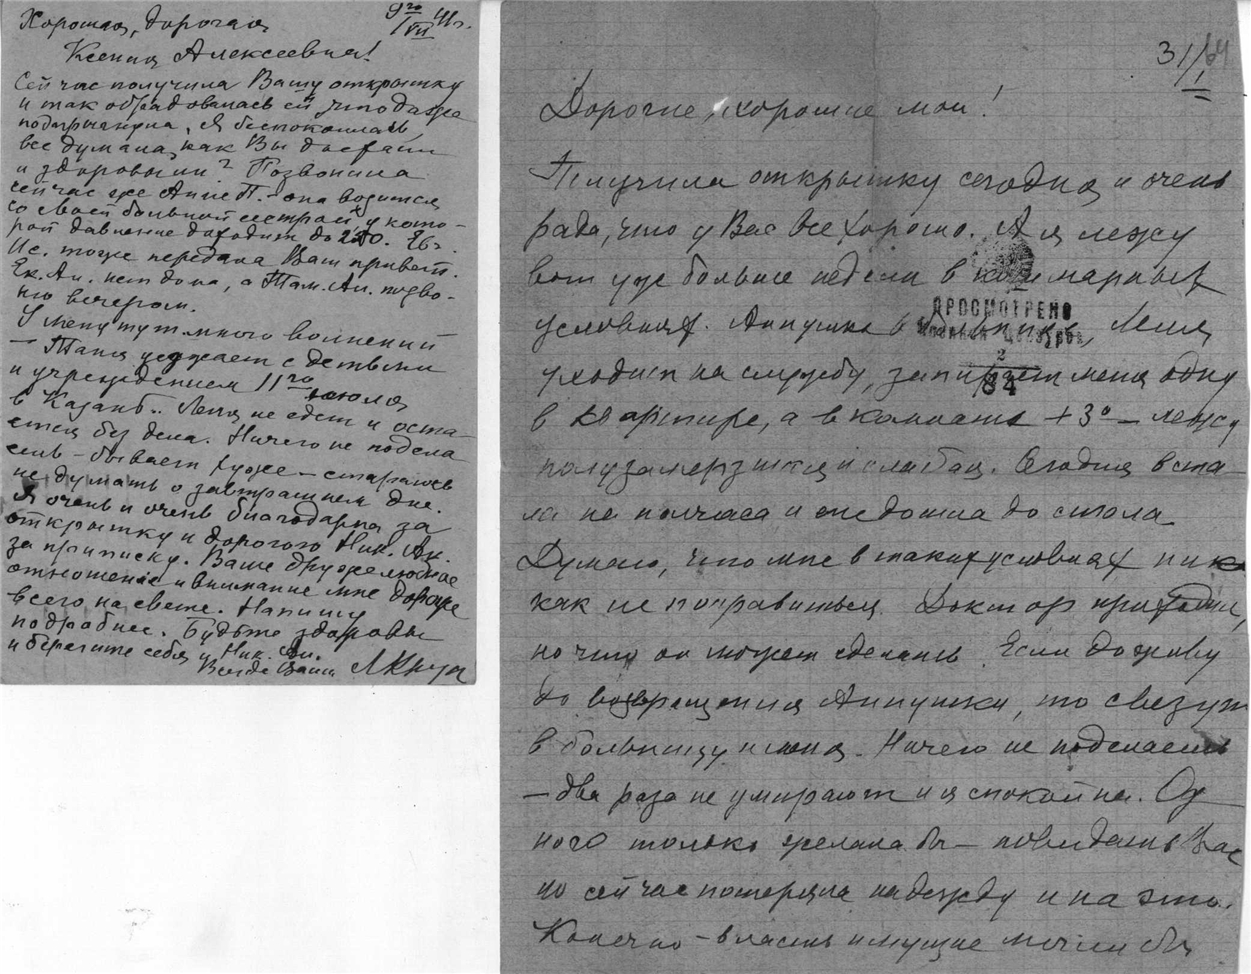 9го/VII 41г.
Хорошая, дорогая
Ксения Алексеевна!
Сейчас получила Вашу открытку
и так обрадовалась ей, что даже
подпрыгнула. Я беспокоилась,
все думала, как Вы доехали
и здоровы ли? Позвонила
сейчас же Анне П. – она возится
со своей больной сестрой, у кото-
рой давление доходит до 230. Ев.
Ис. тоже передала Ваш привет.
Ек. Ан. нет дома, а Там. Ан. позво-
ню вечером.
У меня тут много волнений
– Таня уезжает с детьми
и учреждением 11го июля
в Казань. Леля не едет и оста-
ется без дела. Ничего не подела
ешь – бывает хуже – стараюсь
не думать о завтрашнем дне.
Я очень и очень благодарна за
открытку и дорогого Ник. Ан.
за приписку. Ваше дружелюбное
отношение и внимание мне дороже
всего на свете. Напишу
подробнее. Будьте здоровы
и берегите себя и Ник. Ан.
Всегда Ваша
31/I
Дорогие, хорошие мои!
Получила открытку сегодня и очень
рада, что у Вас все хорошо. А я лежу
вот уже больше недели в кошмарных
условиях. Аннушка в больнице, Леля
уходит на службу, запирает меня одну
в квартире, а в комнате +3° – лежу
полузамерзшая и слабая. Сегодня вста
ла на полчаса и еле дошла до стола
Думаю, что мне в таких условиях ник
как не поправиться. Доктор приходил,
но что он может сделать. Если доживу
до возвращения Аннушки, то свезут
в больницу и меня. Ничего не поделаешь
– два раза не умирают и я спокойна. Од
ного только желала бы – повидать Вас
но сейчас потеряла надежду и на это.
Конечно – власть имущие могли бы
ПРОСМОТРЕНО
Военной Цензурой
2
84